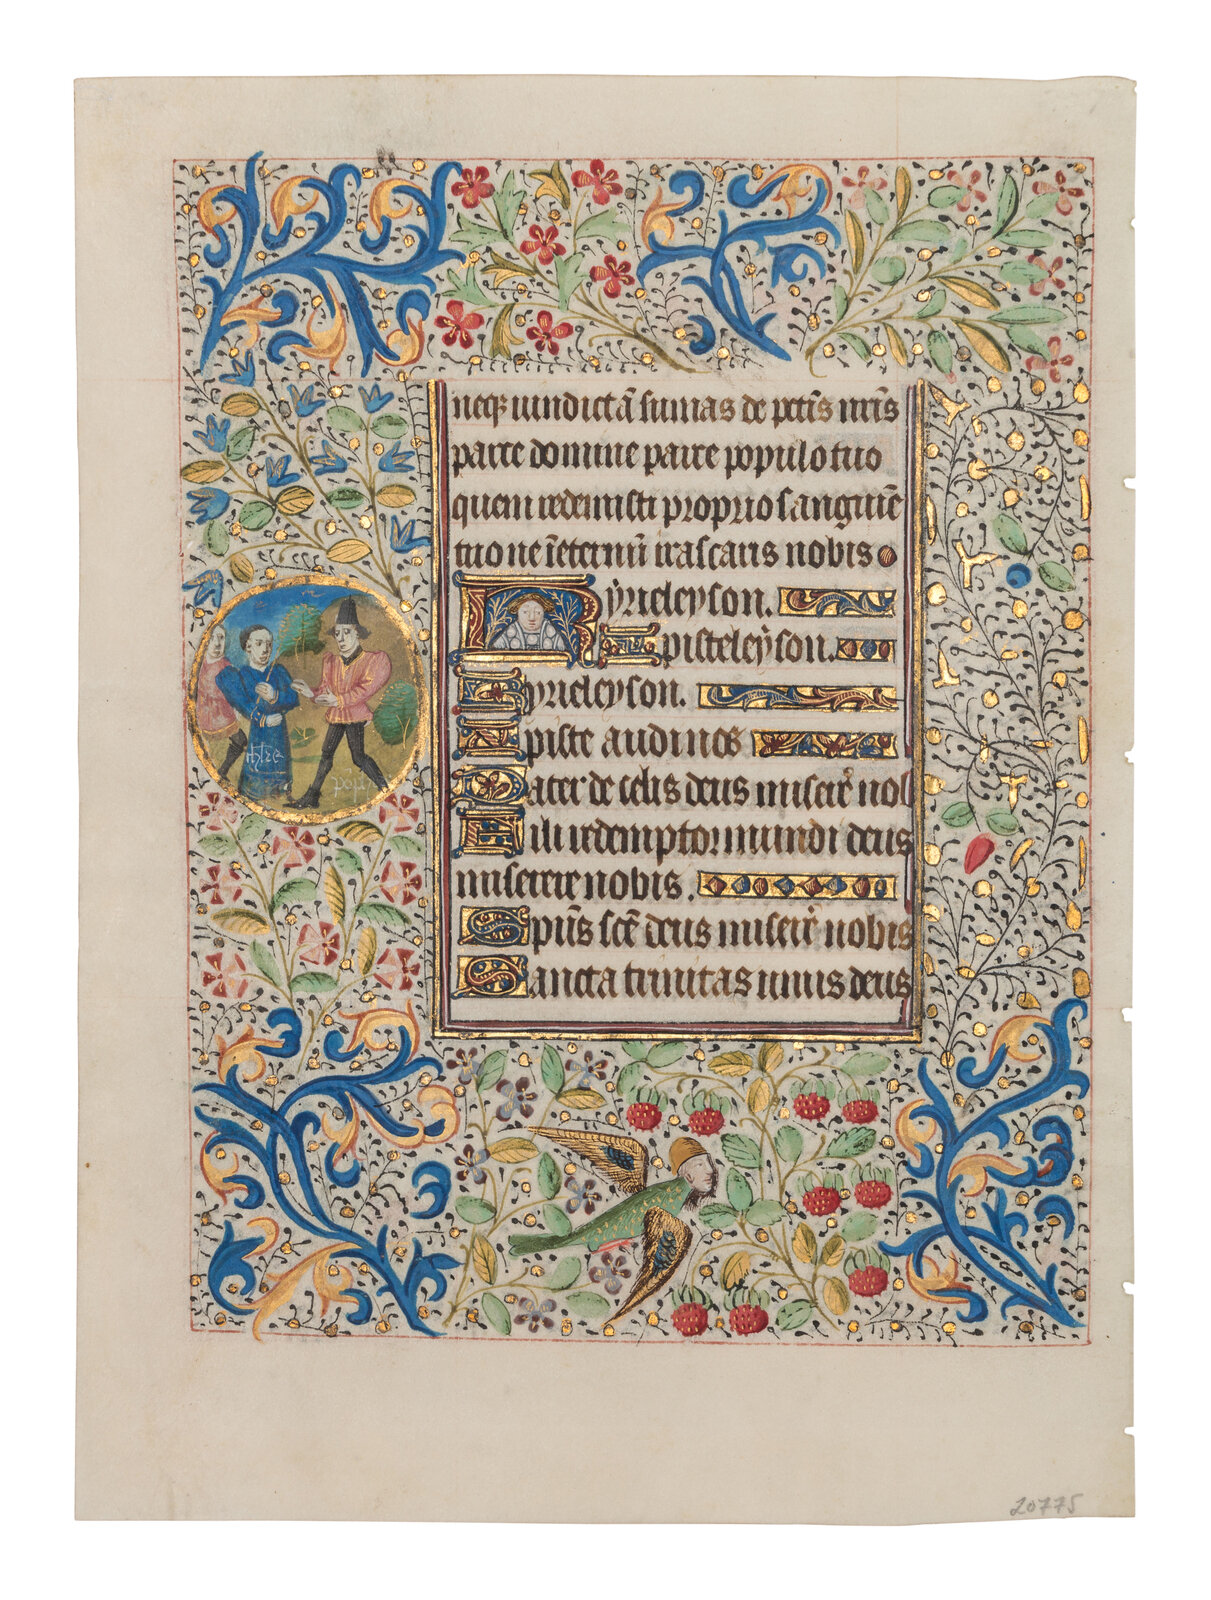 neqꝫ uindictā sumas de pctīs nr̄is
parce domine parce populo tuo
quem redemisti proprio sanguinē
tuo ne ī eternū irascaris nobis
Kyrieleyson.
Xpisteleyson.
Kyrieleyson.
Xpiste audi nos
Pater de celis deus miserē nob
Fili redemptor mundi deus
miserere nobis.
Spūs scē deus miserē nobis
Sancta trinitas unus deus
20775